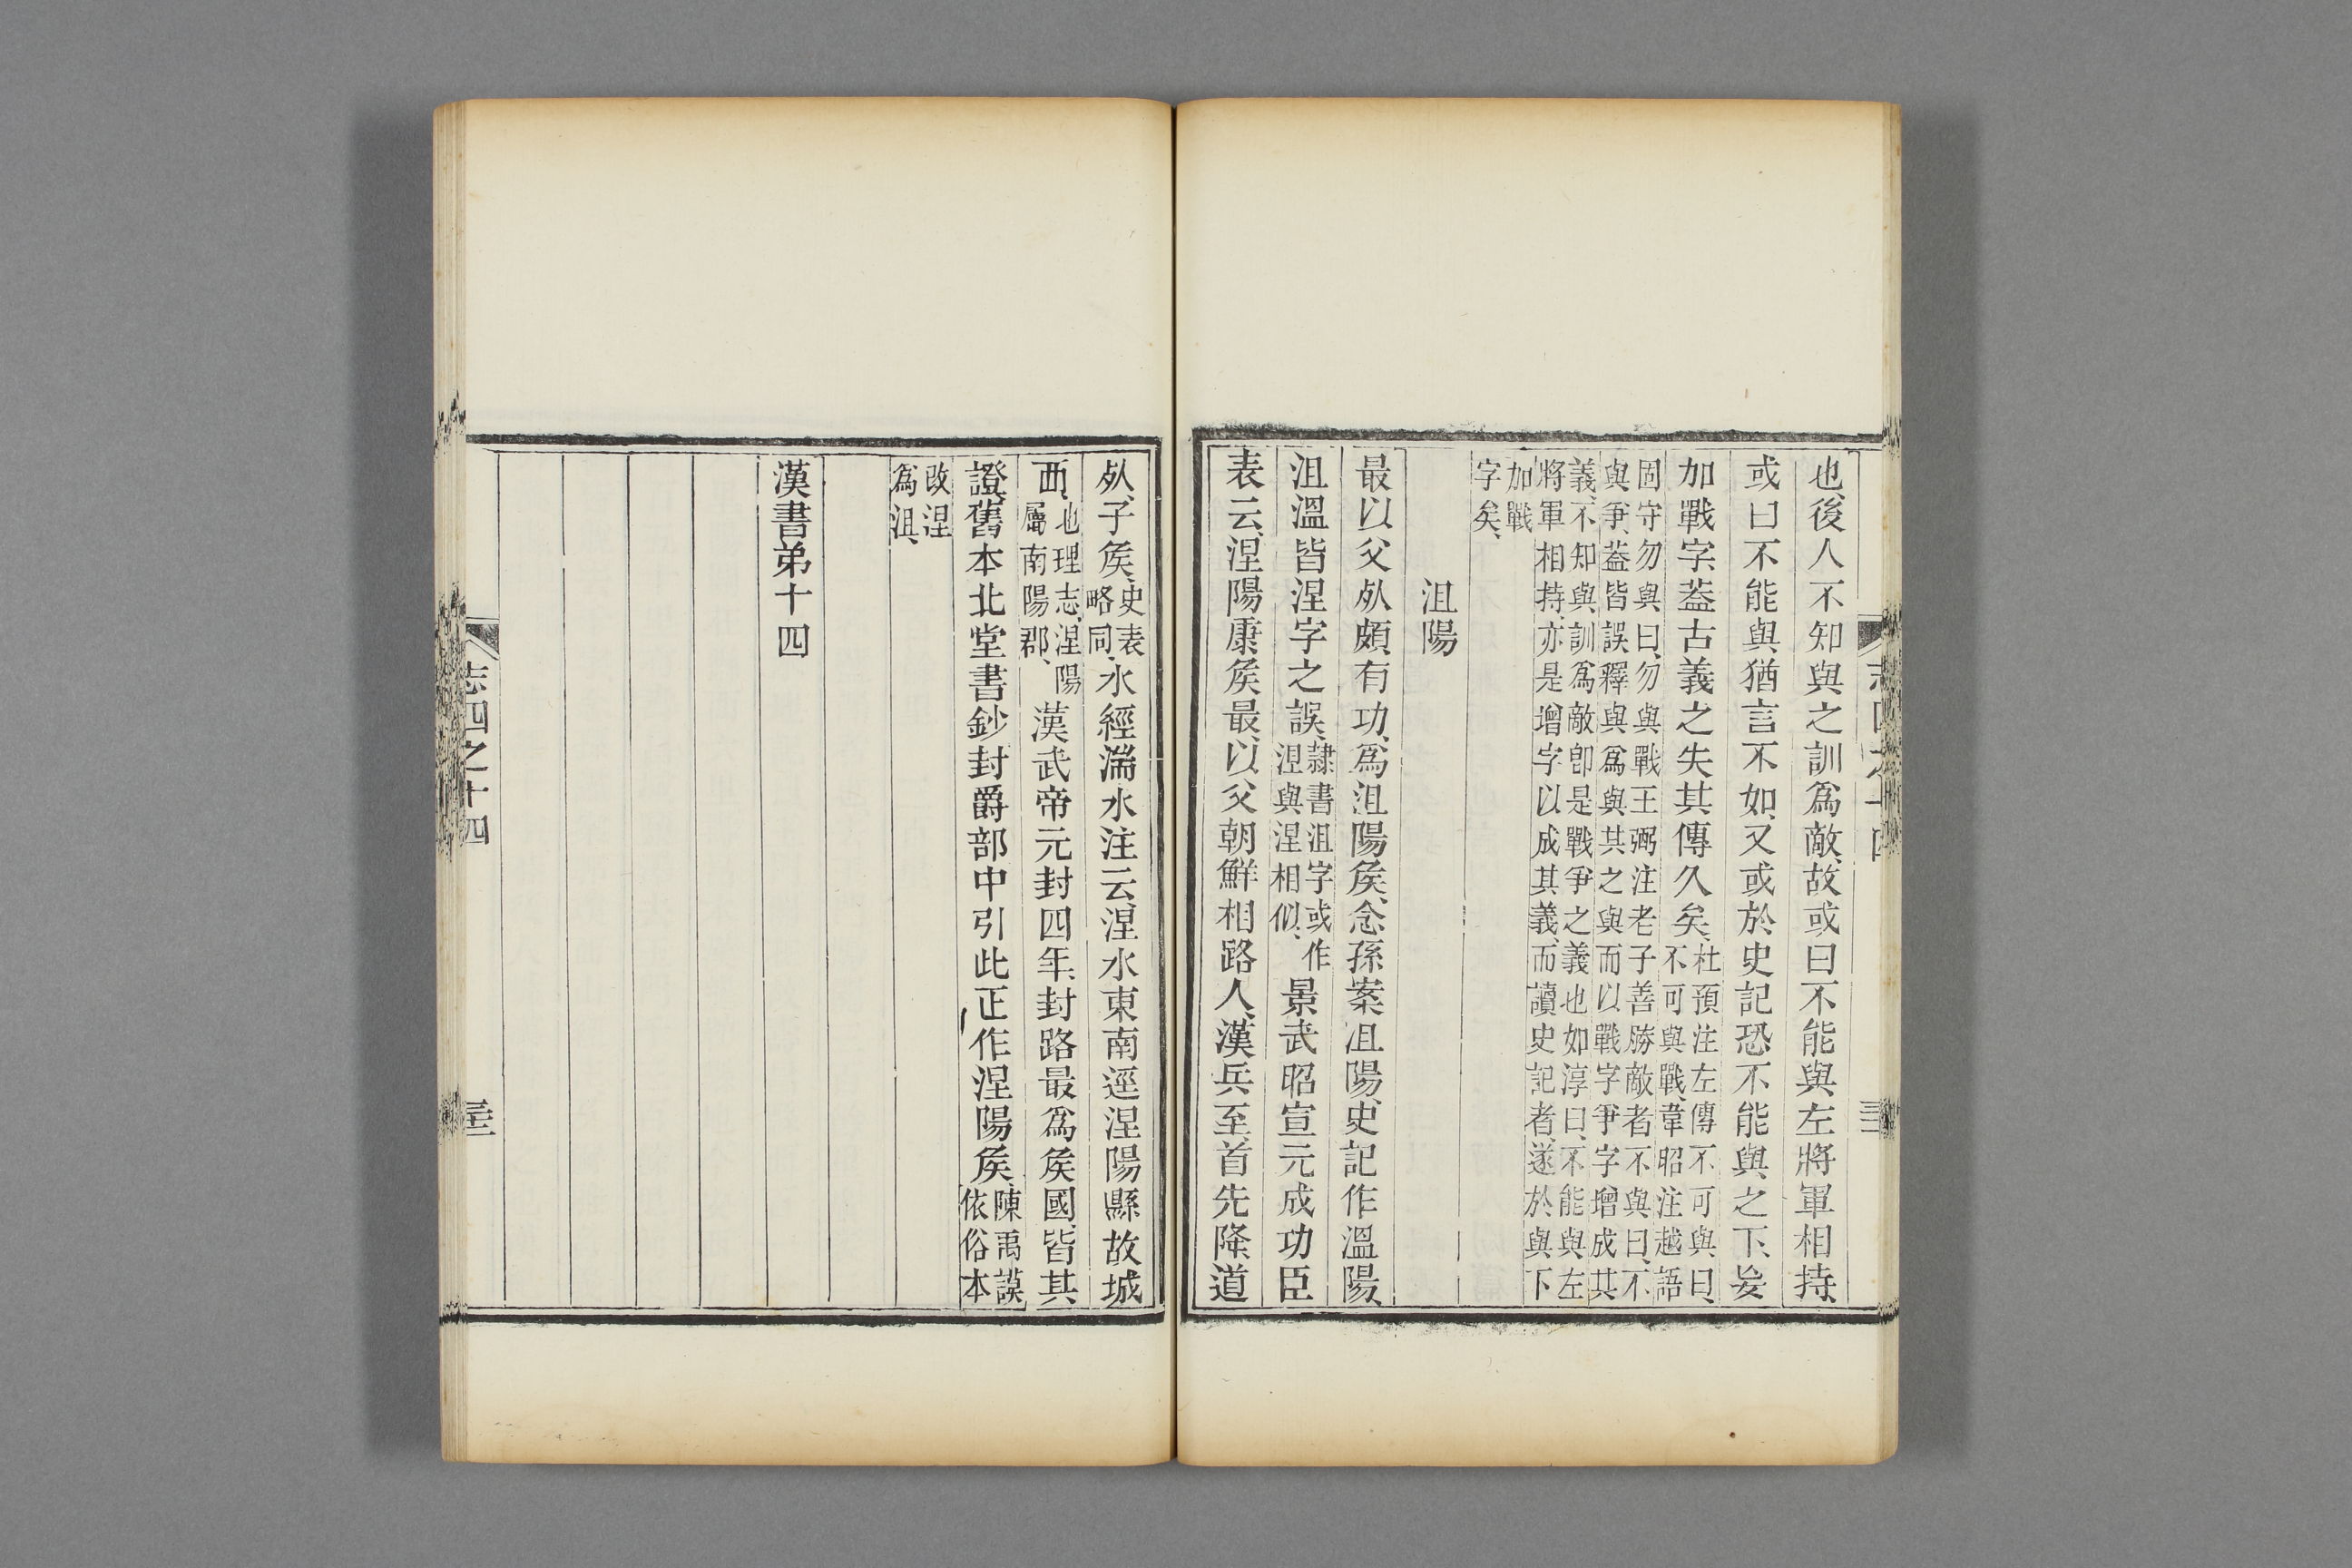 也、後人不知與之訓爲敵、故或曰不能與左將軍相持、
或曰不能與猶言不如、又或於史記恐不能與之下、妄
加戰字、葢古義之失其傳久矣、杜預注左傳不可與曰、不可與戰、韋昭注越語
固守勿與曰、勿與戰王弼注老子善勝敵者不與曰、不
與爭、葢皆誤釋與爲與其之與而以戰字爭字增成其
義、不知與訓爲敵卽是戰爭之義也如淳曰、不能與左
將軍相持、亦是增字以成其義、而讀史記者、遂於與下
加戰
字矣、
沮陽
最以父死頗有功、爲沮陽矦、念孫案沮陽、史記作溫陽、
沮溫皆涅字之誤、隸書沮字或作涅與涅相似、景武昭宣元成功臣
表云、涅陽康矦最、以父朝鮮相路人、漢兵至、首先降、道
死、子矦、史表略同、水經湍水注云、涅水東南逕涅陽縣故城
西、地理志、涅陽屬南陽郡、漢武帝元封四年、封路最爲矦國、皆其
證、舊本北堂書鈔封爵部中引此正作涅陽矦、陳禹謨依俗本
改涅
爲沮、
漢書弟十四
志四之十四